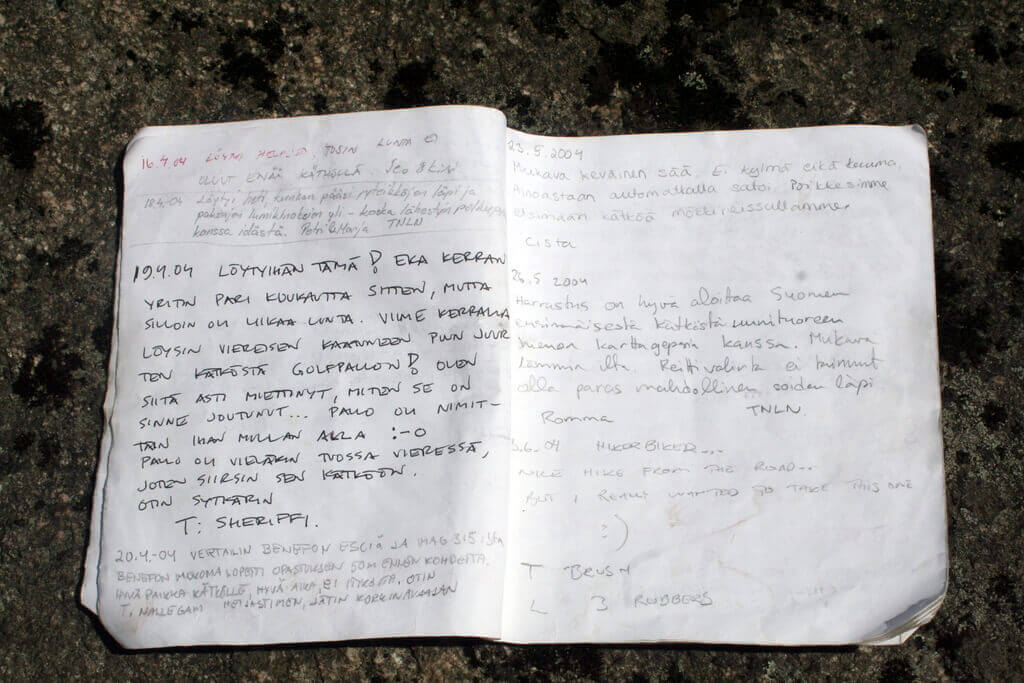 16.4.04 LÖYTYI HELPOSTI, TOSIN LUNTA EI
OLLUT ENÄÄ KÄTKÖLLÄ.
18.4.04 Löytyi heti, kunhan pääsi ryteikköjen läpi ja
paksujen lumikinosten yli -
kanssa idästä. Petri & Marja TNLN
19.4.04 LÖYTYIHÄN TÄMÄ! EKA KERRAN
YRITIN PARI KUUKAUTTA SITTEN, MUTTA
SILLOIN OLI LIIKAA LUNTA. VIIME KERRALLA
LÖYSIN VIEREISEN KAATUNEEN PUUN JUUR
TEN KÄTKÖSTÄ GOLFPALLON! OLEN
SIITÄ ASTI MIETTINYT, MITEN SE ON
SINNE JOUTUNUT... PALLO OLI NIMIT-
TÄIN IHAN MULLAN ALLA :-O
PALLO OLI VIELÄKIN TUOSSA VIERESSÄ,
JOTEN SIIRSIN SEN KÄTKÖÖN.
OTIN SYTKÄRIN
T: SHERIFFI.
20.4.-04 VERTAILIN BENEFON ESCIÄ JA MAG 315:STA
BENEFON MOKOMA LOPETTI OPASTUKSEN 50M ENNEN KOHDETTA.
HYVÄ PAIKKA KÄTKÖLLE, HYVÄ AIKA, EI OTIN
T. NALLEGAM HEIJASTIMEN, JÄTIN KORKINAVAAJAN
23.5.2004
Mukava keväinen sää. Ei kylmä eikä kuuma.
Ainoastaan automatkalla satoi. Poikkesimme
etsimään kätköä mökkireissullamme.
Cista
26.5 2004
Harrastus on hyvä aloittaa Suomen
ensimmäisestä kätköstä uunituoreen
hienon karttagepsin kanssa. Mukava
lämmin ilta. Reittivalinta ei tainnut
olla paras mahdollinen soiden läpi
Romma TNLN.
3.6.04 HIKERBIKER...
NICE HIKE FROM THE ROAD..
BUT I REALLY WANTED TO TAKE THIS ONE
:)
T BRUSH
L 3 RUBBERS